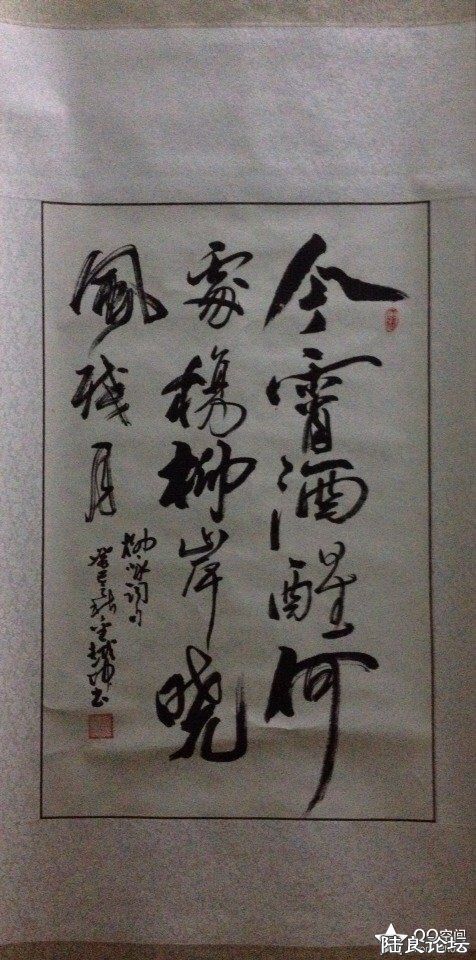 今霄酒醒何
處楊柳岸曉
風殘月
柳永詞句
癸巳
書
QQ空间
陆良论坛